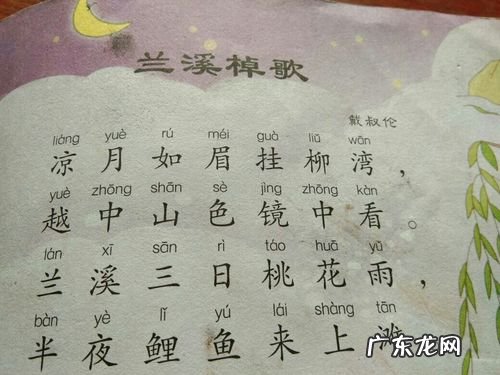 兰溪棹歌
戴叔伦
liáng yuè rú méi guà liǔ wān
凉月如眉挂柳湾，
yuè zhōng shān sè jìng zhōng kàn
越中山色镜中看。
lán xī sān rì táo huā yǔ
兰溪三日桃花雨，
bàn yè lǐ yú lái shàng tān
半夜鲤鱼来上滩
广东龙网